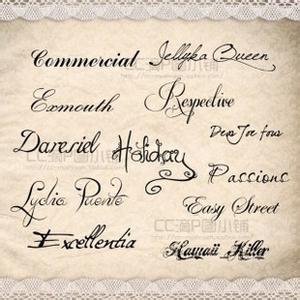 Commercial
Jellyka Queen
Exmouth
Respective
Daresiel
Holiday
Passions
Lydia Puente
Easy Street
Excellentia
Hawaii Killer